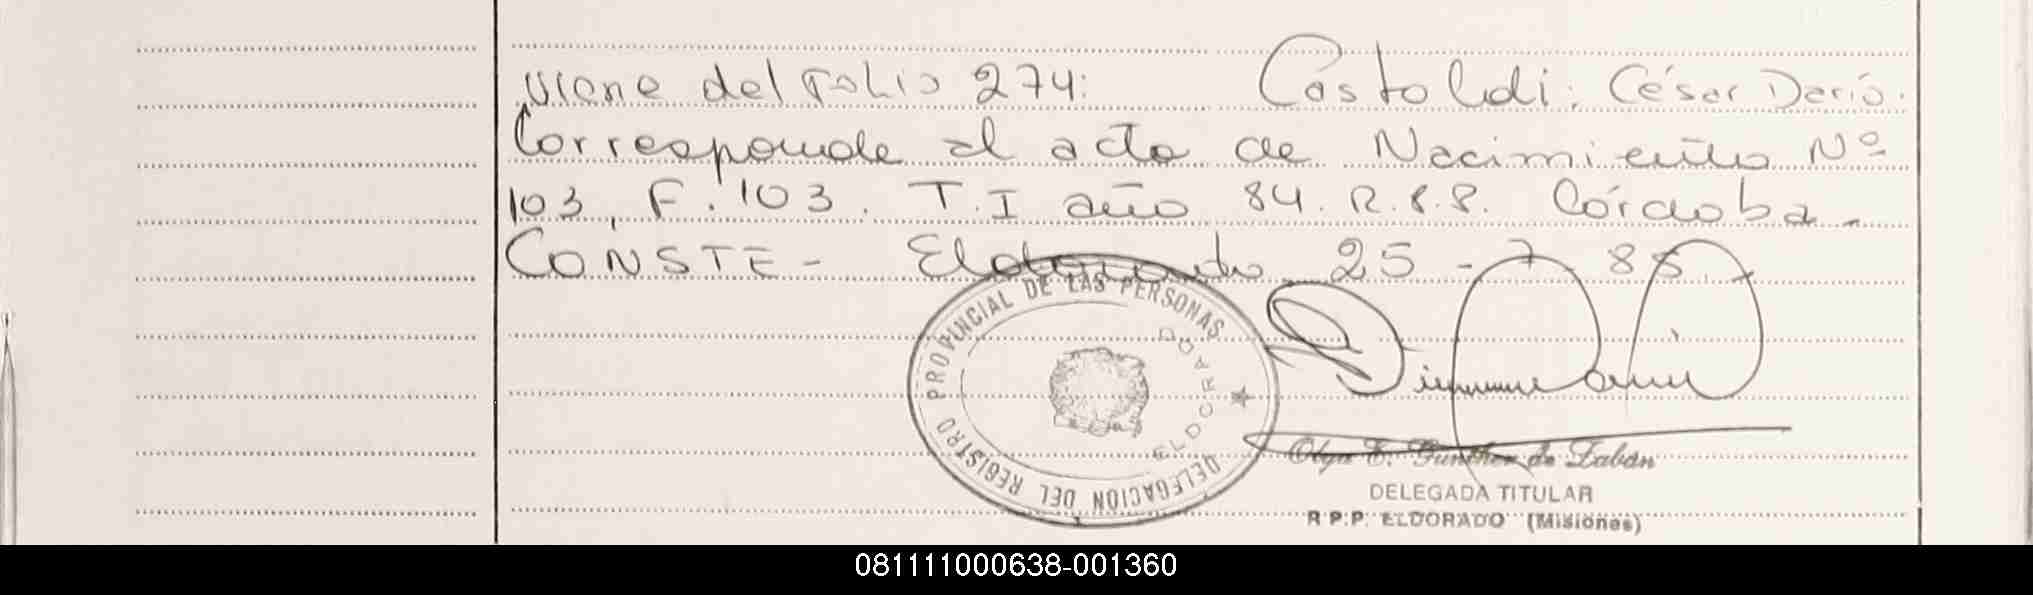 viene del Folio 274: Castoldi: César Darío.
Corresponde al acta de Nacimiento Nº
103, F. 103. T. I año 84. R.P.P. Córdoba.-
CONSTE- Eldorado 25 - 7 - 85.-
DELEGACION DEL REGISTRO PROVINCIAL DE LAS PERSONAS
ELDORADO
Olga E. Gunther de Zabán
DELEGADA TITULAR
R.P.P. ELDORADO (Misiones)
081111000638-001360